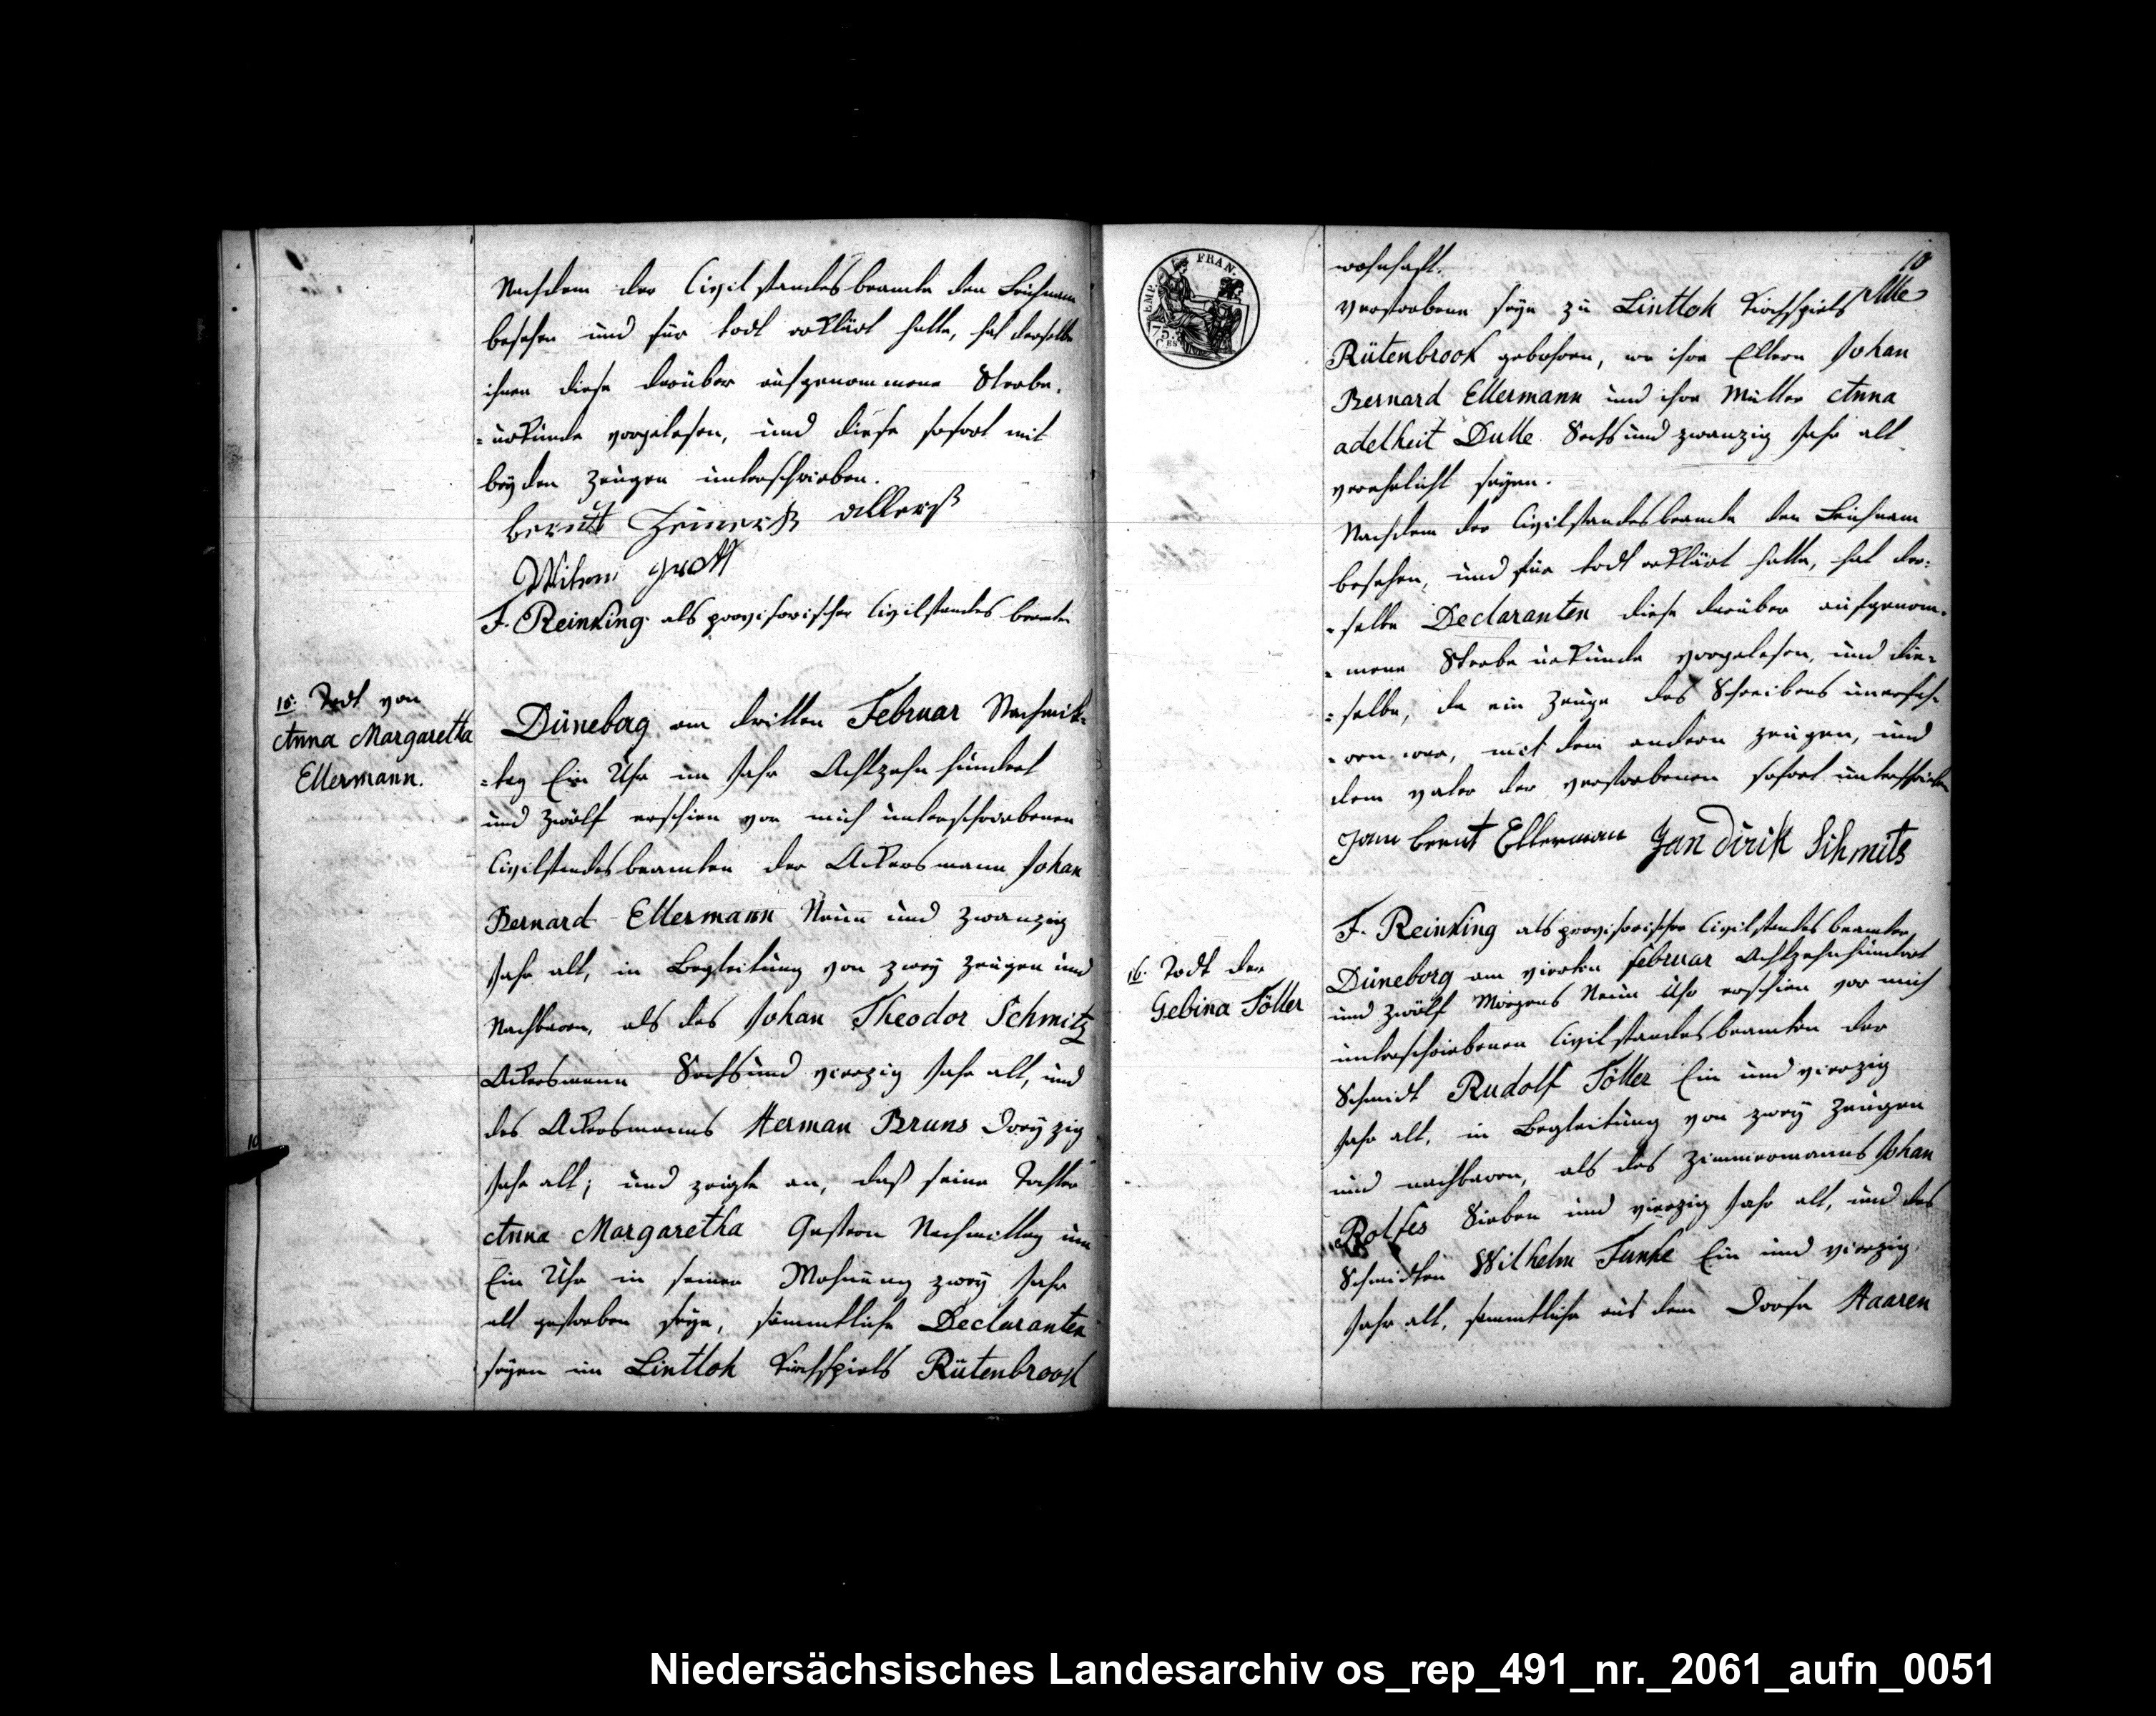 Nachdem der Civilstandesbeamte den Leichnam
besehen und für todt erklärt hatte, hat derselbe
ihnen diese darüber aufgenommene Sterbe-
=urkunde vorgelesen, und diese sofort mit
beyden Zeugen unterschrieben.
F. Reinking als provisorischer Civilstandes beamter
15. Todt von
Anna Margaretha
Ellermann.
Düneborg am dritten Februar Nachmit-
=tag Ein Uhr im Jahr Achtzehn hundert
und zwölf erschien vor mich unterschriebenen
Civilstandesbeamten der Ackersmann Johan
Bernard Ellermann Neun und zwanzig
Jahr alt, in Begleitung von zwey Zeugen und
Nachbaren, als des Johan Theodor Schmitz
Ackersmann Sechsund vierzig Jahr alt, und
des Ackersmanns Herman Bruns Dreyzig
Jahr alt; und zeigte an, daß seine Tochter
Anna Margaretha Gestern Nachmittag um
Ein Uhr in seiner Wohnung zwey Jahr
alt gestorben seye, sämmtliche Declaranten
seyen im Lintloh Kirchspiels Rütenbrook
10
EMP. FRAN.
75
wohnhaft.
Verstorbene seye zu Lintloh Kirchspiels
Rütenbrook gebohren, wo ihre Eltern Johan
Bernard Ellermann und ihre Mutter Anna
adelheit Dulle Sechs und zwanzig Jahr alt
verehelicht seyen.
Nachdem der Civilstandesbeamte den Leichnam
besehen, und für todt erklärt hatte, hat der-
=selbe Declaranten diese darüber aufgenom-
=mene Sterbe urkunde vorgelesen, und die-
=selbe, da ein Zeuge des Schreibens unerfah-
=ren war, mit dem andern Zeugen, und
dem Vater der verstorbenen sofort unterschrieben
Jann bernt Ellermann Jan dirik Schmits
F. Reinking als provisorischer Civilstandes beamter,
16. Todt der
Gebina Töller
Düneborg am vierten februar Achtzehnhundert
und zwölf Morgens Neun Uhr erschien vor mich
unterschriebenen Civilstandesbeamten der
Schmidt Rudolf Töller Ein und vierzig
Jahr alt, in Begleitung von zwey Zeugen
und nachbaren, als des Zimmermanns Johan
Rolfes Sieben und vierzig Jahr alt, und des
Schmidten Wilhelm Funke Ein und vierzig
Jahr alt, sämmtliche aus dem Dorfe Haaren
Niedersächsisches Landesarchiv os_rep_491_nr._2061_aufn_0051